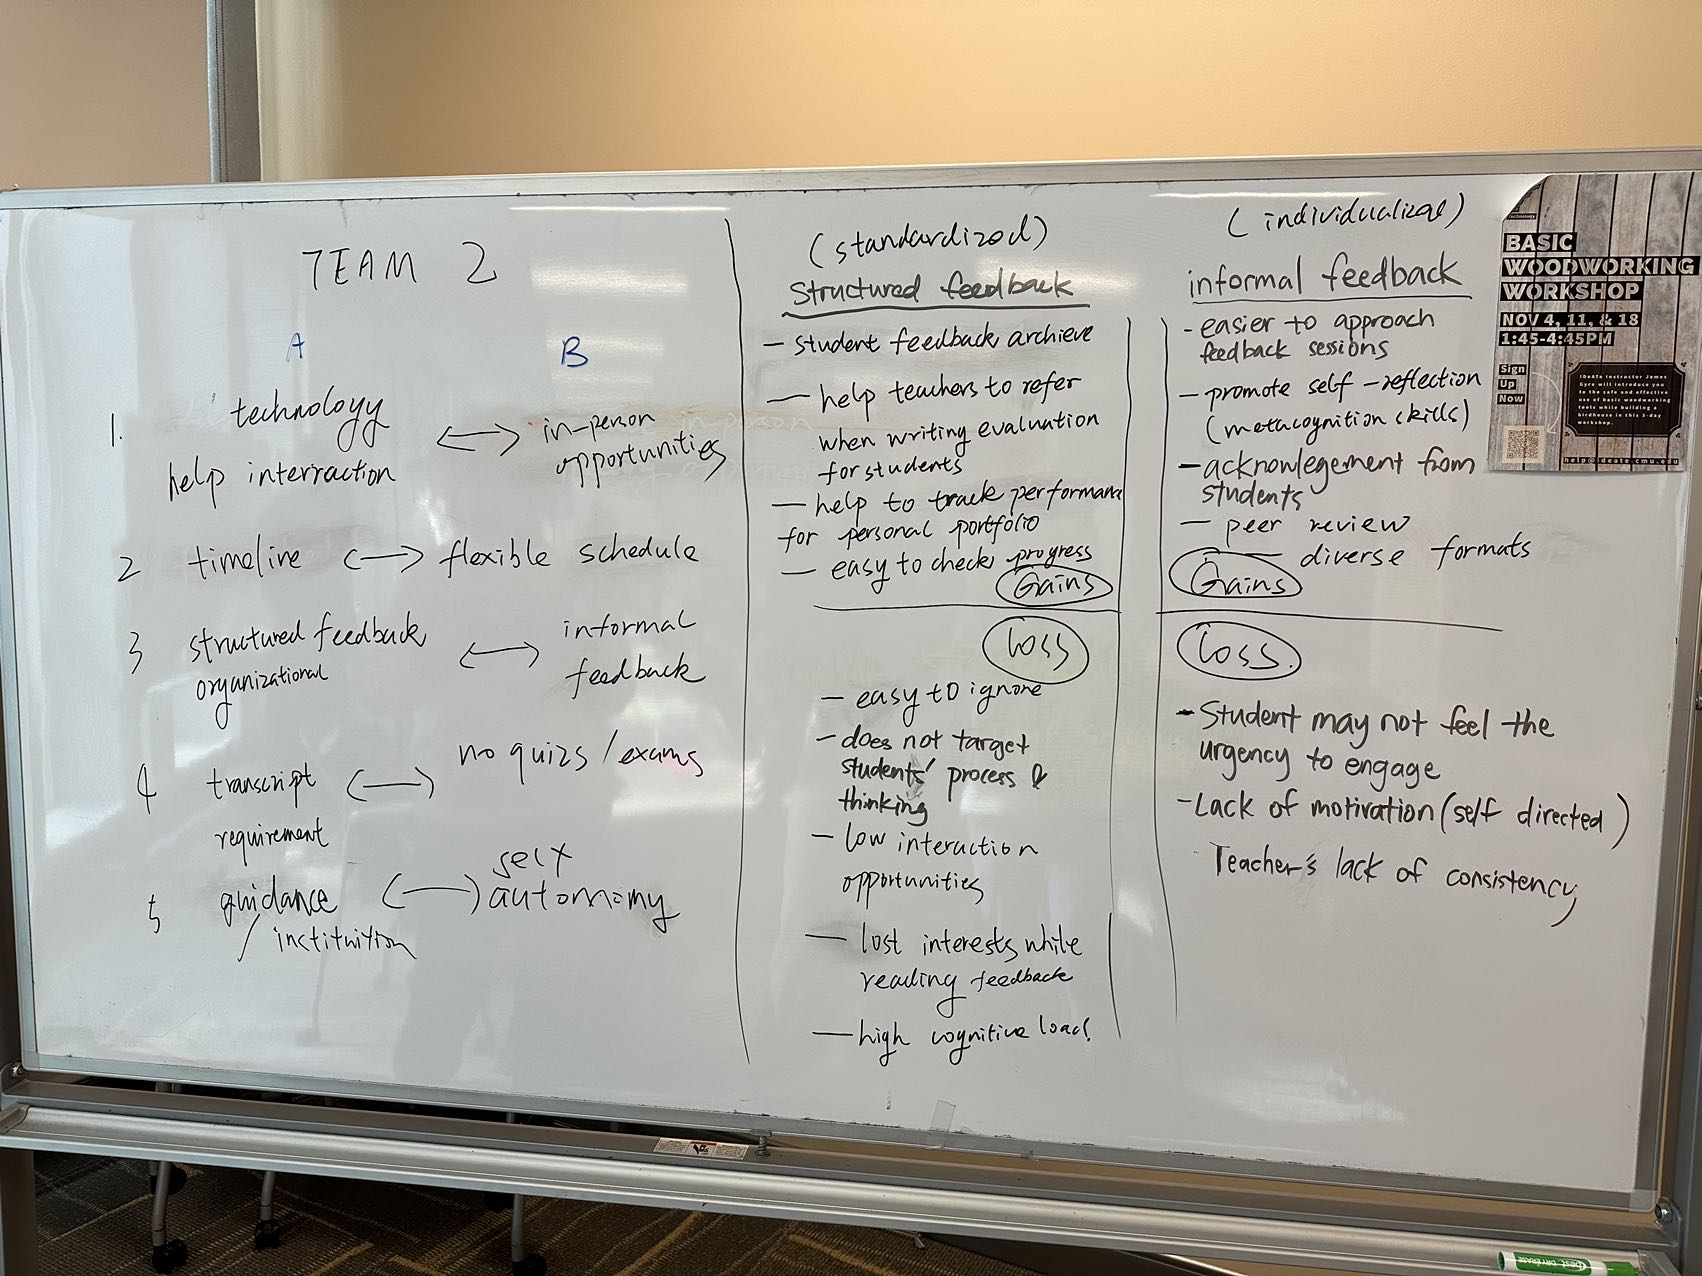 TEAM 2
A
B
1. technology
help interraction
in-person
opportunities
2 timeline
flexible schedule
3 structured feedback
organizational
informal
feedback
4 transcript
requirement
no quizs / exams
5 guidance
/ instituition
self
autonomy
(standardized)
structured feedback
- student feedback archieve
- help teachers to refer
when writing evaluation
for students
- help to track performance
for personal portfolio
- easy to check progress
Gains
Loss
- easy to ignore
- does not target
students' process &
thinking
- low interaction
opportunities
- lost interests while
reading feedback
- high cognitive load!
(individualized)
informal feedback
- easier to approach
feedback sessions
- promote self-reflection
(metacognition skills)
- acknowlegement from
students
- peer review
- diverse formats
Gains
Loss.
- Student may not feel the
urgency to engage
- Lack of motivation (self directed)
Teacher's lack of consistency
technology
BASIC
WOODWORKING
WORKSHOP
NOV 4, 11, & 18
1:45-4:45PM
Sign
Up
Now
IDeATe instructor James
Gyre will introduce you
to the safe and effective
use of basic woodworking
tools while building a
birdhouse in this 3-day
workshop.
help@ideate.cmu.edu
BEST DRY ERASE